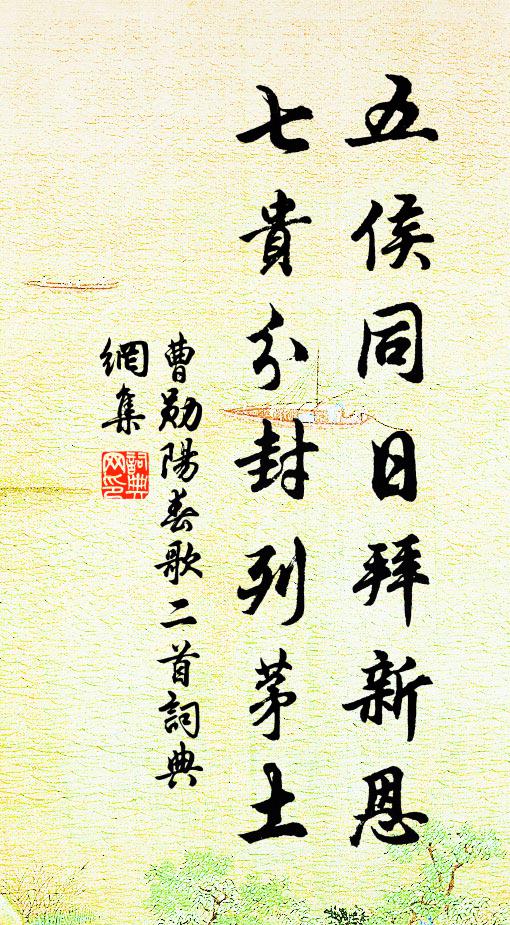 五侯同日拜新恩
七貴分封列茅土
曹勛陽春歌二首詞典
網集
詞典
网印